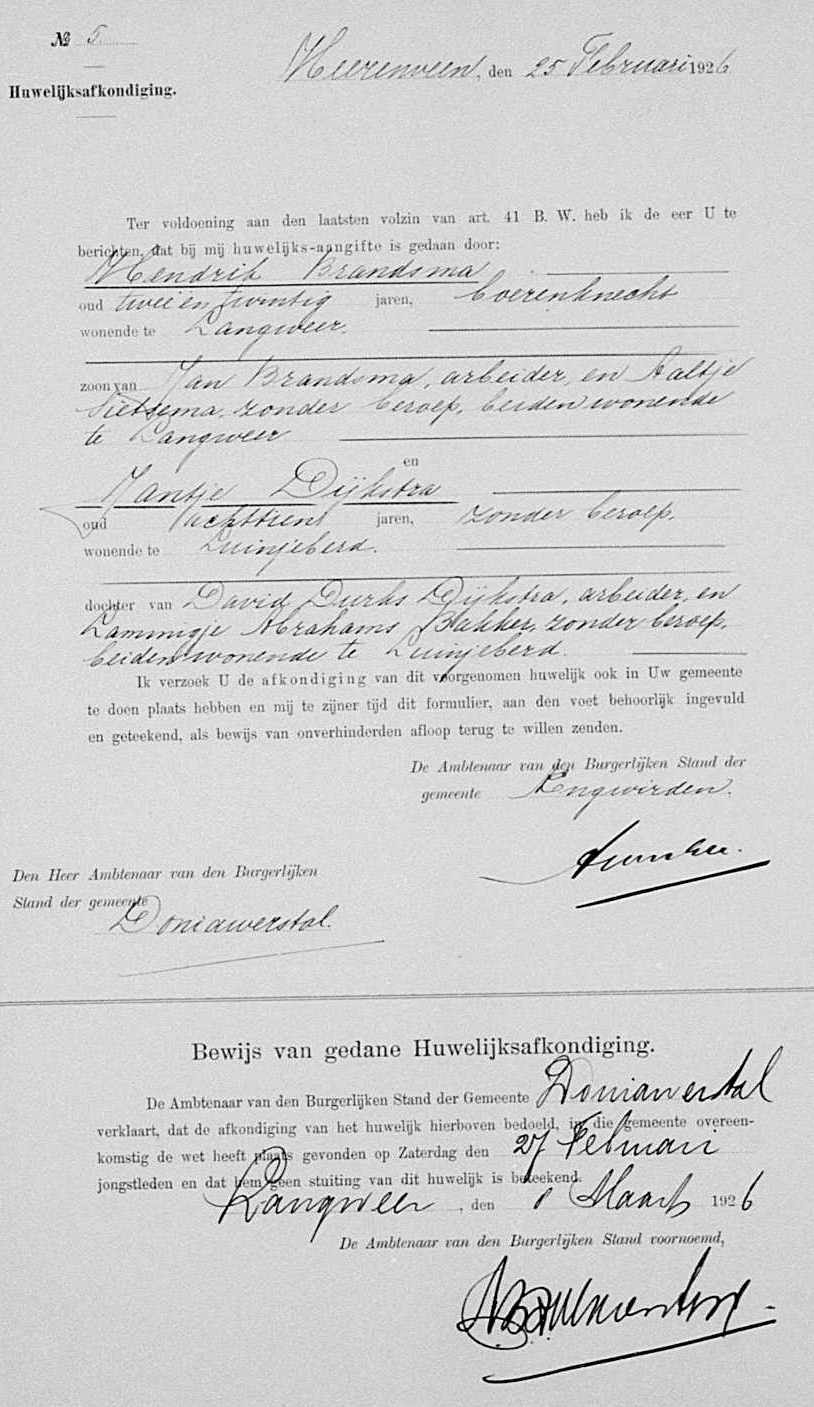 № 5
Heerenveen, den 25 Februari 1926
Huwelijksafkondiging.
Ter voldoening aan den laatsten volzin van art. 41 B. W. heb ik de eer U te
berichten, dat bij mij huwelijks-aangifte is gedaan door:
Hendrik Brandsma
oud twee en twintig jaren, boerenknecht
wonende te Langweer.
zoon van Jan Brandsma, arbeider, en Aaltje
Sietsema, zonder beroep, beiden wonende
te Langweer
en
Jantje Dijkstra
oud achttien jaren, zonder beroep,
wonende te Luinjeberd.
dochter van David Durks Dijkstra, arbeider, en
Lammigje Abrahams Bakker, zonder beroep,
beiden wonende te Luinjeberd.
Ik verzoek U de afkondiging van dit voorgenomen huwelijk ook in Uw gemeente
te doen plaats hebben en mij te zijner tijd dit formulier, aan den voet behoorlijk ingevuld
en geteekend, als bewijs van onverhinderden afloop terug te willen zenden.
De Ambtenaar van den Burgerlijken Stand der
gemeente Engwirden.
Den Heer Ambtenaar van den Burgerlijken
Stand der gemeente
Doniawerstal.
Bewijs van gedane Huwelijksafkondiging.
De Ambtenaar van den Burgerlijken Stand der Gemeente Doniawerstal
verklaart, dat de afkondiging van het huwelijk hierboven bedoeld, in die gemeente overeen-
komstig de wet heeft plaats gevonden op Zaterdag den 27 Februari
jongstleden en dat hem geen stuiting van dit huwelijk is beteekend.
Langweer, den Maart 1926
De Ambtenaar van den Burgerlijken Stand voornoemd,